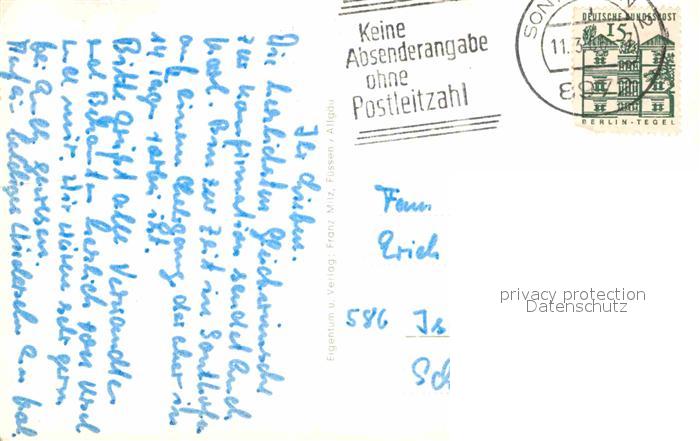 Ihr Lieben.
Die herzlichsten Glückwünsche
zur Konfirmation sendet Euch
Karl. Bin zur Zeit in Sonthofen
auf einem Lehrgang der hier in
14 Tagen
Bitte grüßt alle Verwandten
und Bekannten herzlich von Ursel
und mir. Wir wären sehr gern
bei Euch gewesen.
Auf ein baldiges Wiedersehn Euer Karl.
Eigentum u. Verlag: Franz Milz, Füssen / Allgäu
Keine
Absenderangabe
ohne
Postleitzahl
SON
11.3
897
DEUTSCHE BUNDESPOST
15
BERLIN-TEGEL
Fam.
Erich
586 Is
Sc
privacy protection
Datenschutz